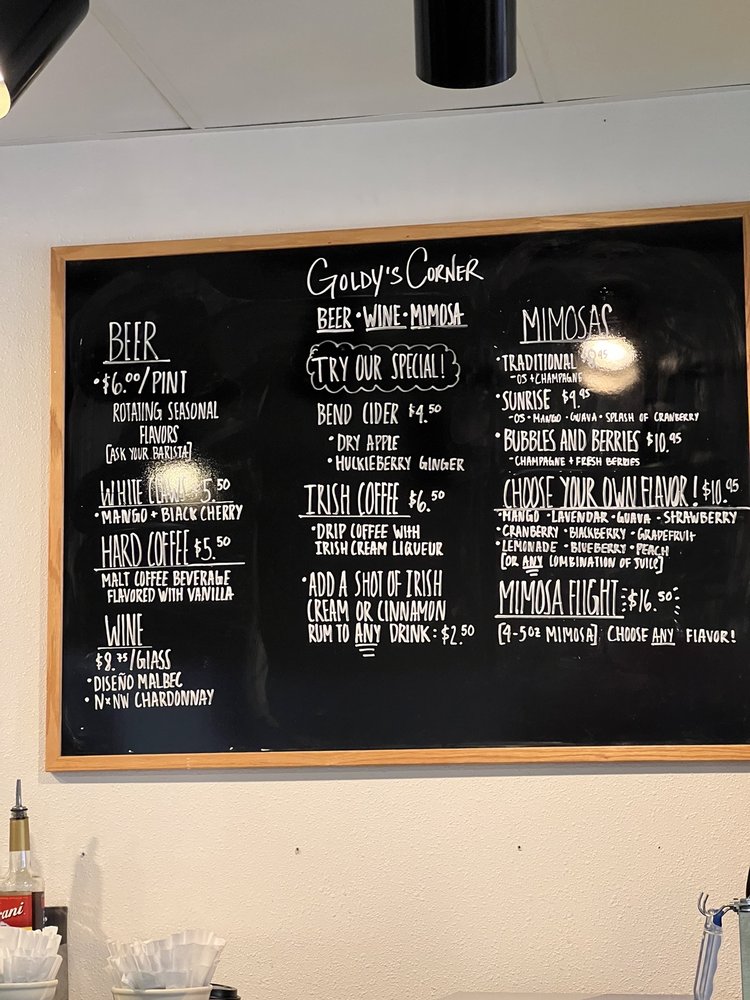 GOLDY'S CORNER
BEER • WINE • MIMOSA
BEER
• $6.00/PINT
ROTATING SEASONAL
FLAVORS
[ASK YOUR BARISTA]
WHITE CLAWS $5.50
• MANGO + BLACK CHERRY
HARD COFFEE $5.50
MALT COFFEE BEVERAGE
FLAVORED WITH VANILLA
WINE
$8.75/GLASS
• DISEÑO MALBEC
• N×NW CHARDONNAY
TRY OUR SPECIAL!
BEND CIDER $4.50
• DRY APPLE
• HUCKIEBERRY GINGER
IRISH COFFEE $6.50
• DRIP COFFEE WITH
IRISH CREAM LIQUEUR
• ADD A SHOT OF IRISH
CREAM OR CINNAMON
RUM TO ANY DRINK: $2.50
MIMOSAS
• TRADITIONAL
- OJ + CHAMPAGNE
• SUNRISE $9.95
- OJ • MANGO • GUAVA • SPLASH OF CRANBERRY
• BUBBLES AND BERRIES $10.95
- CHAMPAGNE + FRESH BERRIES
CHOOSE YOUR OWN FLAVOR! $10.95
MANGO • LAVENDAR • GUAVA • STRAWBERRY
• CRANBERRY • BLACKBERRY • GRAPEFRUIT
• LEMONADE • BLUEBERRY • PEACH
[OR ANY COMBINATION OF JUICE]
MIMOSA FLIGHT $16.50
[4-5OZ MIMOSA] CHOOSE ANY FLAVOR!
rani